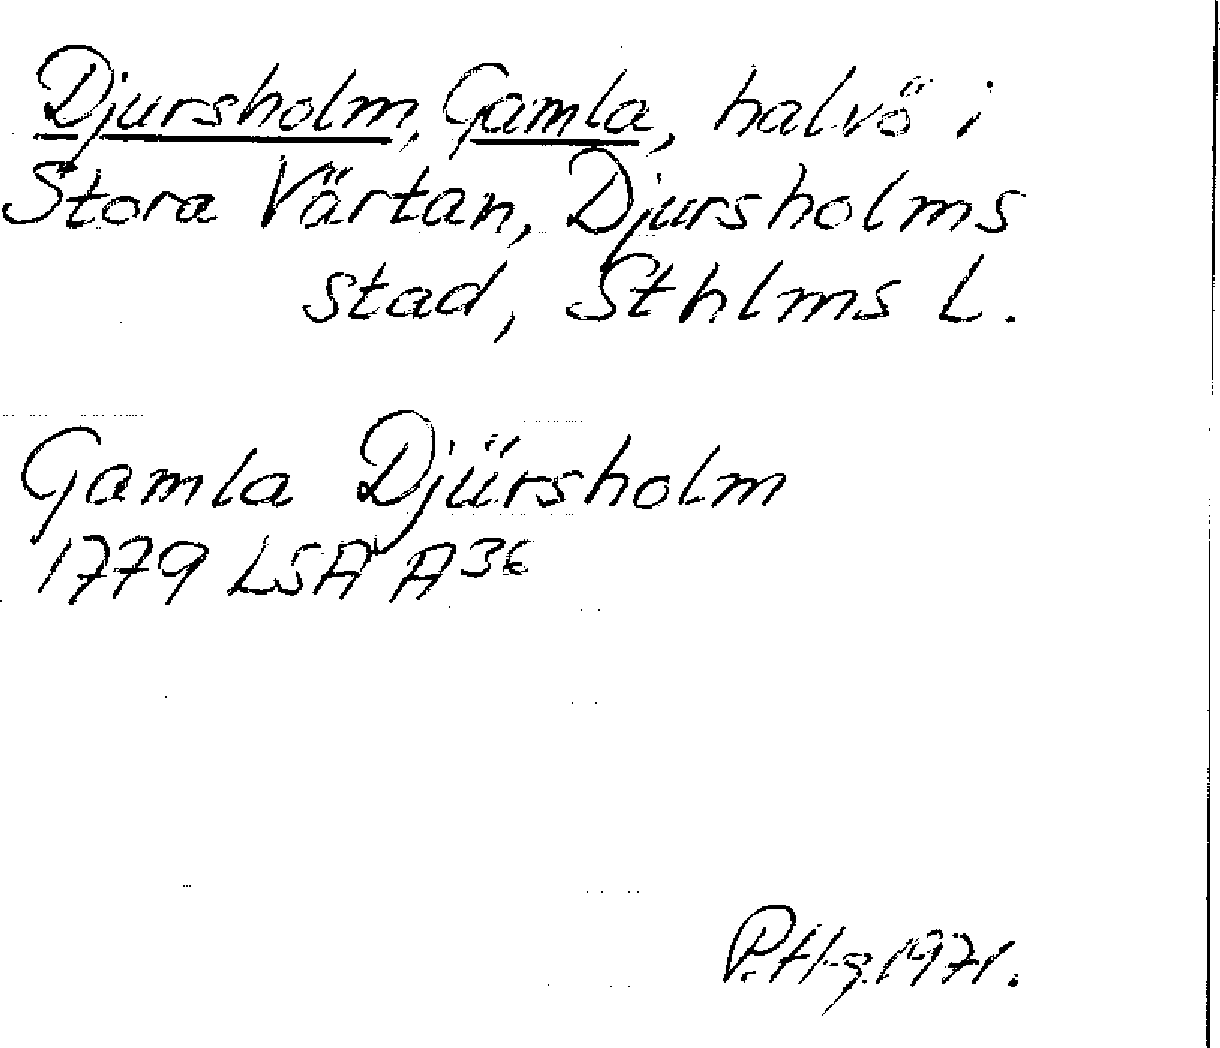 Djursholm, Gamla, halvö i
Stora Värtan, Djursholms
stad, Sthlms L.
Gamla Djürsholm
1779 LSA A36
P.Hg.1971.